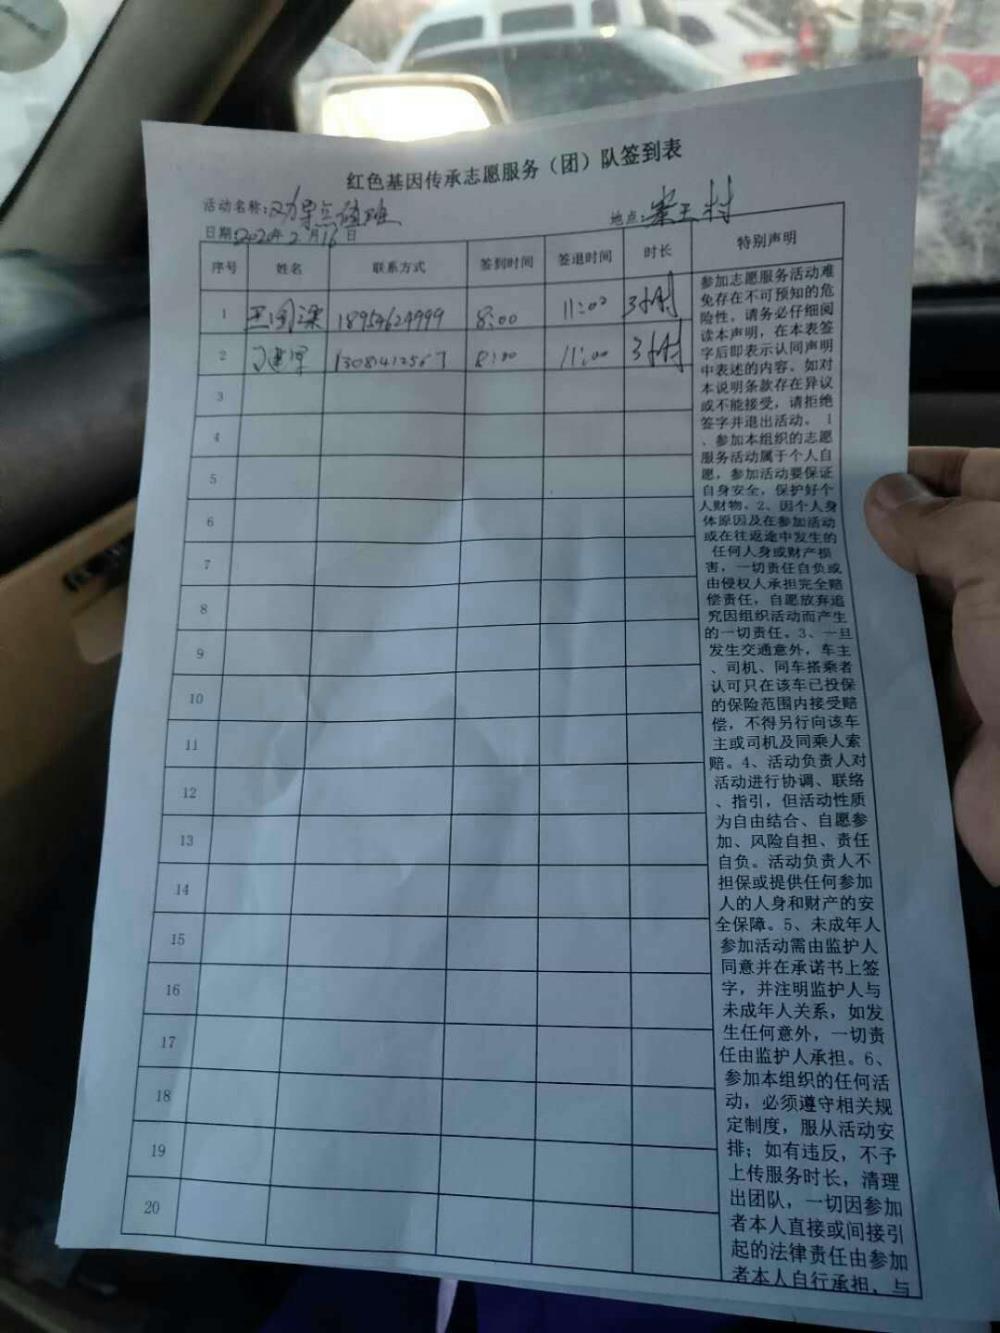 红色基因传承志愿服务（团）队签到表
活动名称:劝导点值班
地点: 王村
日期:2020年2月16日
序号 姓名 联系方式 签到时间 签退时间 时长 特别声明
1 王 18954624999 8:00 11:00 3小时
2 建军 13081412567 8:00 11:00 3小时
3
4
5
6
7
8
9
10
11
12
13
14
15
16
17
18
19
20
参加志愿服务活动难
免存在不可预知的危
险性，请务必仔细阅
读本声明，在本表签
字后即表示认同声明
中表述的内容。如对
本说明条款存在异议
或不能接受，请拒绝
签字并退出活动。 1
、参加本组织的志愿
服务活动属于个人自
愿，参加活动要保证
自身安全，保护好个
人财物。2、因个人身
体原因及在参加活动
或在往返途中发生的
任何人身或财产损
害，一切责任自负或
由侵权人承担完全赔
偿责任，自愿放弃追
究因组织活动而产生
的一切责任。3、一旦
发生交通意外，车主
、司机、同车搭乘者
认可只在该车已投保
的保险范围内接受赔
偿，不得另行向该车
主或司机及同乘人索
赔。4、活动负责人对
活动进行协调、联络
、指引，但活动性质
为自由结合、自愿参
加、风险自担、责任
自负。活动负责人不
担保或提供任何参加
人的人身和财产的安
全保障。5、未成年人
参加活动需由监护人
同意并在承诺书上签
字，并注明监护人与
未成年人关系，如发
生任何意外，一切责
任由监护人承担。6、
参加本组织的任何活
动，必须遵守相关规
定制度，服从活动安
排；如有违反，不予
上传服务时长，清理
出团队，一切因参加
者本人直接或间接引
起的法律责任由参加
者本人自行承担，与